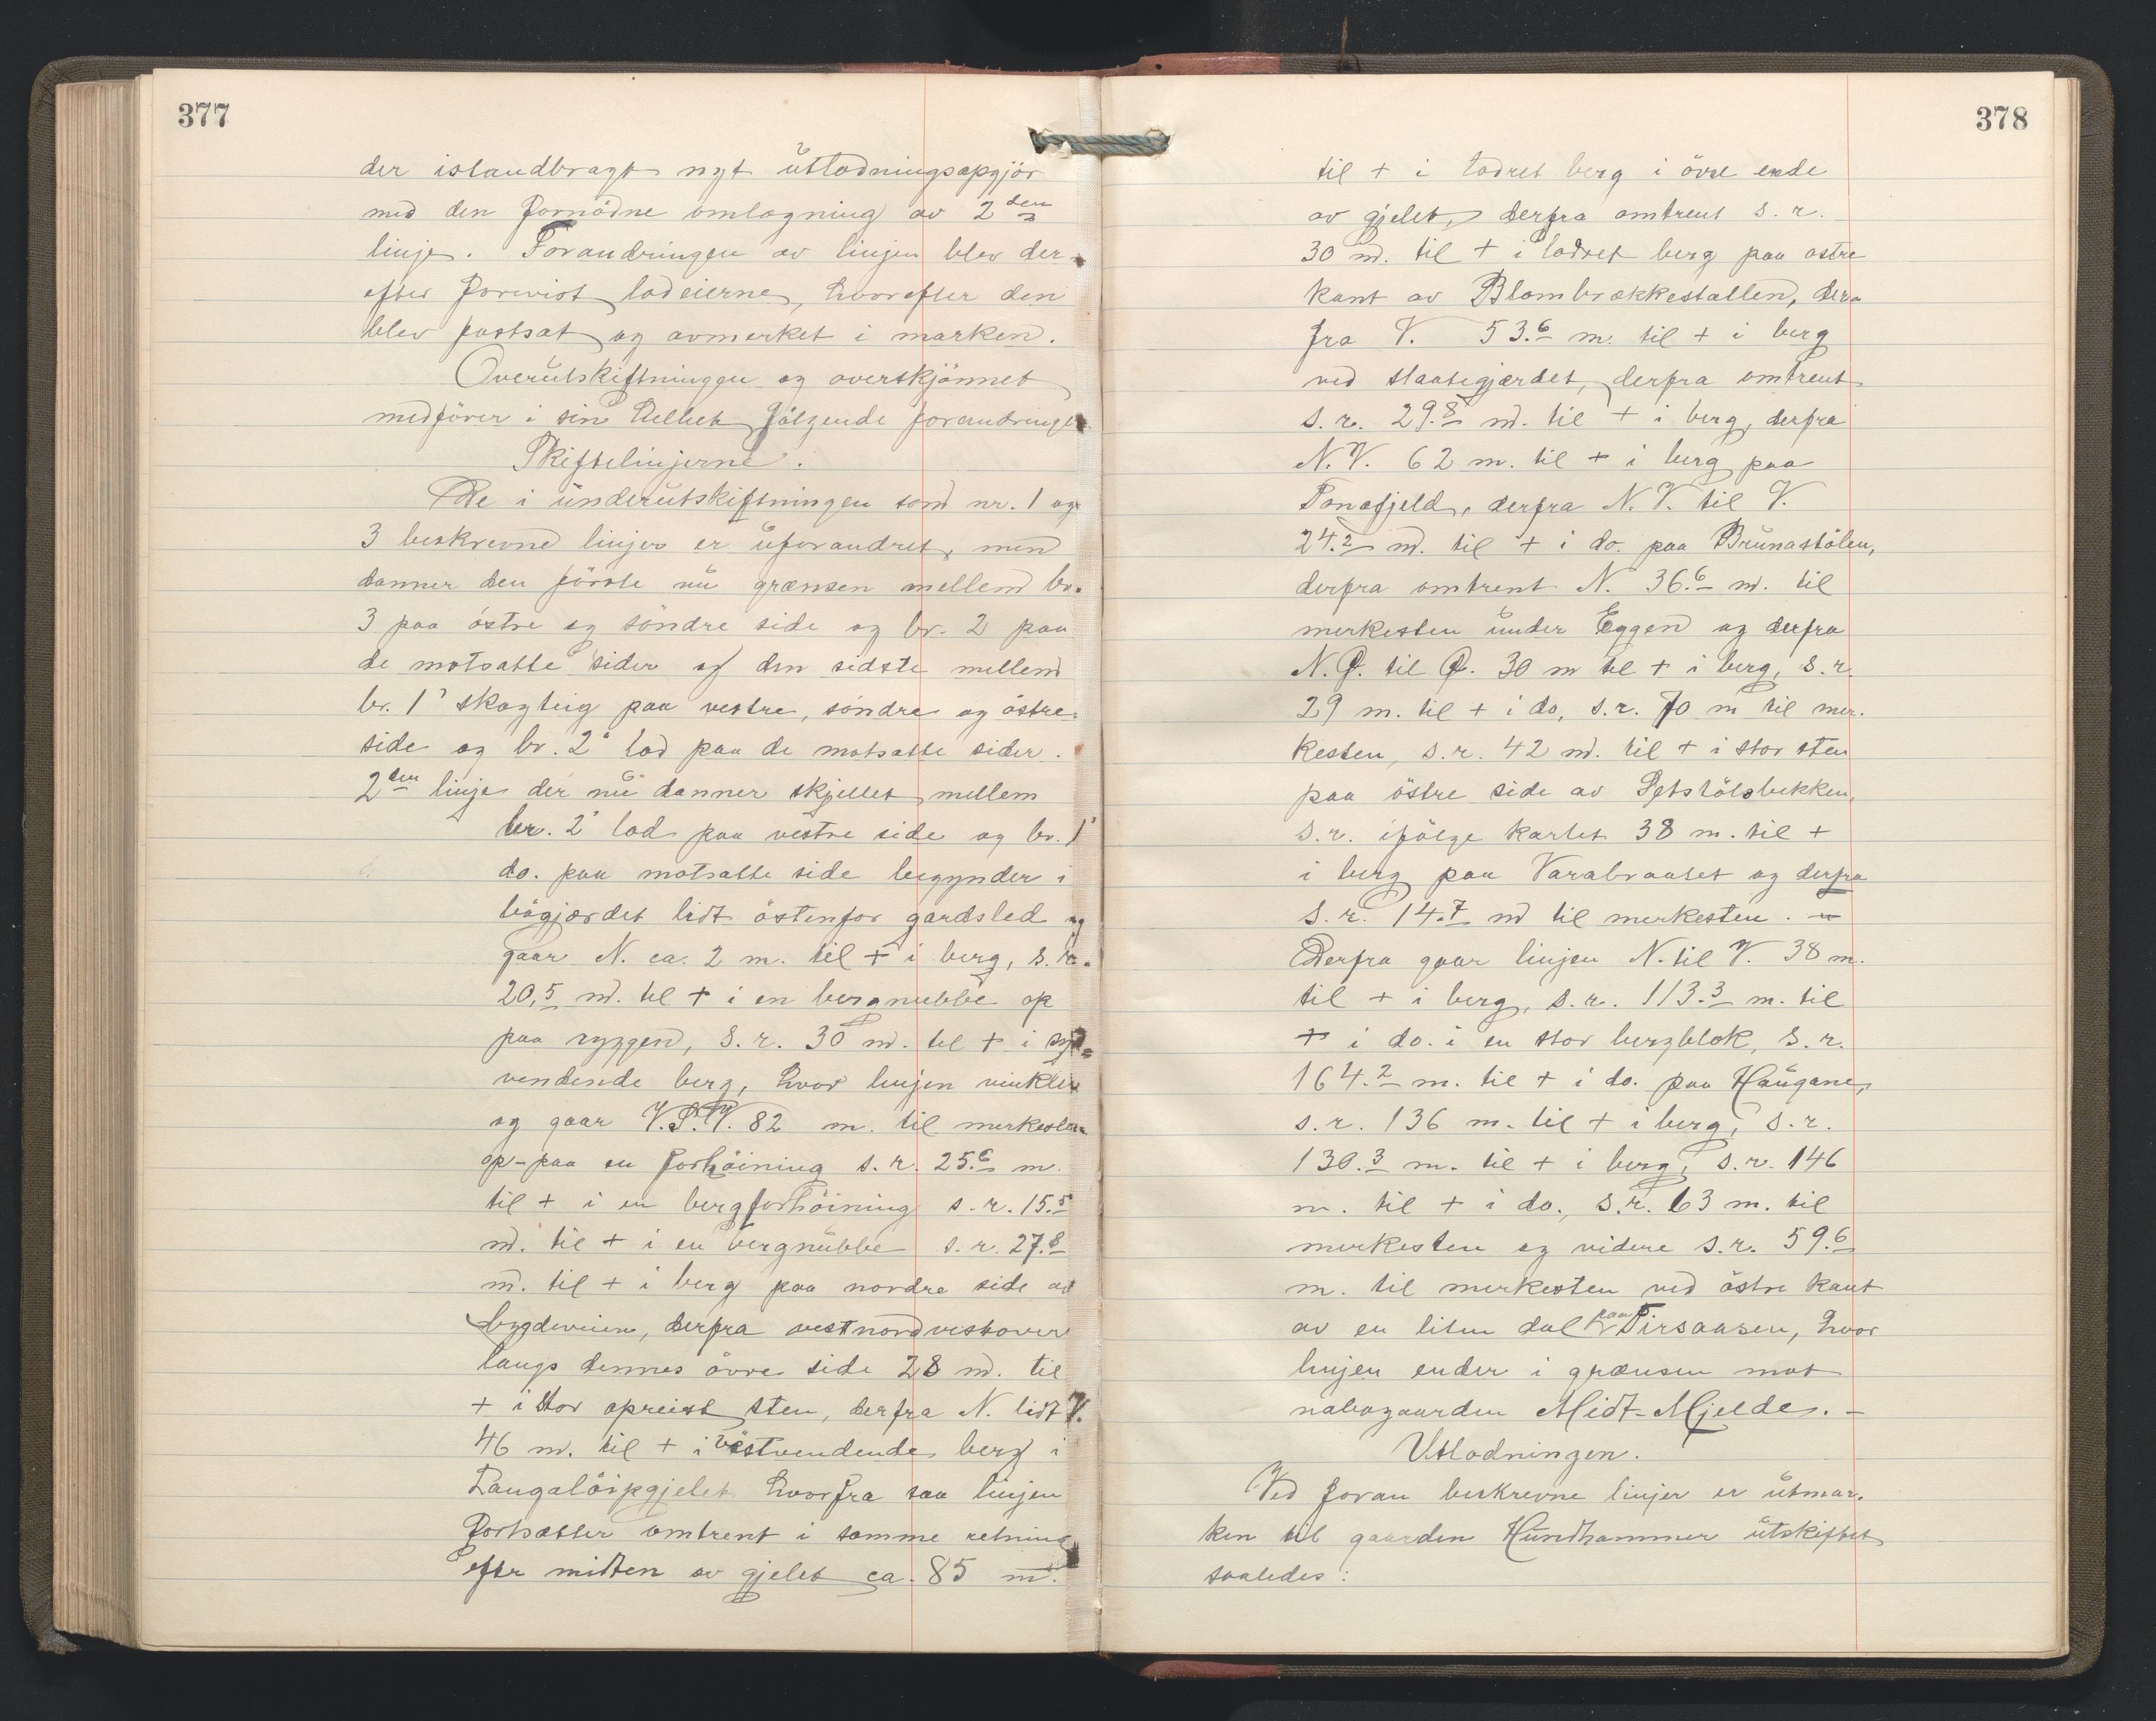 377
der istandbragt nyt utlodningsopgjör
med den fornödne omlægning av 2den
linje. Forandringen av linjen blev der-
efter forevist lodeierne, hvorefter den
blev fastsat og avmerket i marken.
Overutskiftningen og overskjönnet
medförer i sin helhet fölgende forandringer
Skiftelinjerne.
De i underutskiftningen som nr. 1 og
3 beskrevne linjer er uforandret, men
danner den förste nu grænsen mellem br.
3 paa östre og söndre side og br. 2 paa
de motsatte sider og den sidste mellem
br. 1' skogteig paa vestre, söndre og östre
side og br. 2' lod paa de motsatte sider.
2den linje der nu danner skjellet mellem
br. 2' lod paa vestre side og br. 1'
do. paa motsatte side begynder i
bögjærdet lidt östenfor gardsled og
gaar N. ca. 2 m. til + i berg, s.r.
20,5 m. til + i en bergnubbe op
paa ryggen, s.r. 30 m. til + i syd-
vendende berg, hvor linjen vinkler
og gaar V.S.V. 82 m. til merkesten
op paa en forhöining s.r. 25.6 m.
til + i en bergforhöining s.r. 15.5
m. til + i en bergnubbe s.r. 27.8
m. til + i berg paa nordre side av
bygdeveien, derfra vestnordvestover
langs dennes övre side 28 m. til
+ i stor opreist sten, derfra N. lidt V.
46 m. til + i vestvendende berg i
Langalöipgjelet hvorfra saa linjen
fortsætter omtrent i samme retning
efter midten av gjelet ca. 85 m.
378
til + i lodret berg i övre ende
av gjelet, derfra omtrent s.r.
30 m. til + i lodret berg paa östre
kant av Blombrækkestallen, der-
fra V. 53.6 m. til + i berg
ved slaattegjærdet, derfra omtrent
s.r. 29.8 m. til + i berg, derfra
N.V. 62 m. til + i berg paa
Tonafjeld, derfra N.V. til V.
24.2 m. til + i do. paa Brunastölen,
derfra omtrent N. 36.6 m. til
merkesten under Eggen og derfra
N.Ø. til Ø. 30 m til + i berg, s.r.
29 m. til + i do, s.r. 70 m til mer-
kesten, s.r. 42 m. til + i stor sten
paa östre side av Setstölsbekken,
s.r. ifölge kartet 38 m. til +
i berg paa Varabraatet og derfra
s.r. 14.7 m til merkesten. —
Derfra gaar linjen N. til V. 38 m.
til + i berg, s.r. 113.3 m. til
+ i do. i en stor bergblok, s.r.
164.2 m. til + i do. paa Haugane,
s.r. 136 m. til + i berg, s.r.
130.3 m. til + i berg, s.r. 146
m. til + i do., s.r. 63 m. til
merkesten og videre s.r. 59.6
m. til merkesten ved östre kant
av en liten dal paa Tirsaasen, hvor
linjen ender i grænsen mot
nabogaarden Midt-Mjelde. —
Utlodningen.
Ved foran beskrevne linjer er utmar-
ken til gaarden Hundhammer utskiftet
saaledes: